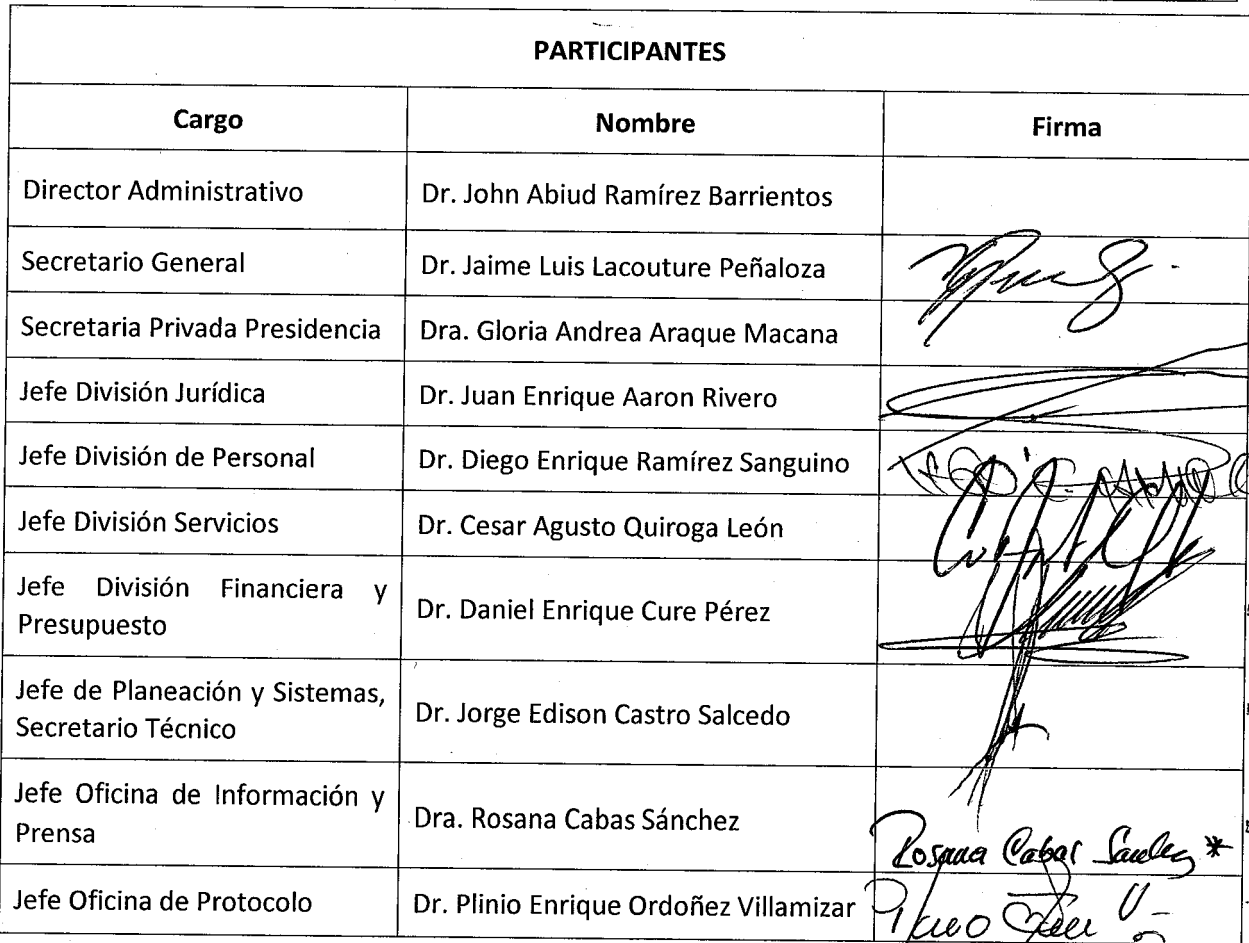 PARTICIPANTES
Cargo Nombre Firma
Director Administrativo Dr. John Abiud Ramírez Barrientos
Secretario General Dr. Jaime Luis Lacouture Peñaloza
Secretaria Privada Presidencia Dra. Gloria Andrea Araque Macana
Jefe División Jurídica Dr. Juan Enrique Aaron Rivero
Jefe División de Personal Dr. Diego Enrique Ramírez Sanguino
Jefe División Servicios Dr. Cesar Agusto Quiroga León
Jefe División Financiera y
Presupuesto Dr. Daniel Enrique Cure Pérez
Jefe de Planeación y Sistemas,
Secretario Técnico Dr. Jorge Edison Castro Salcedo
Jefe Oficina de Información y
Prensa Dra. Rosana Cabas Sánchez
Rosana Cabas *
Jefe Oficina de Protocolo Dr. Plinio Enrique Ordoñez Villamizar